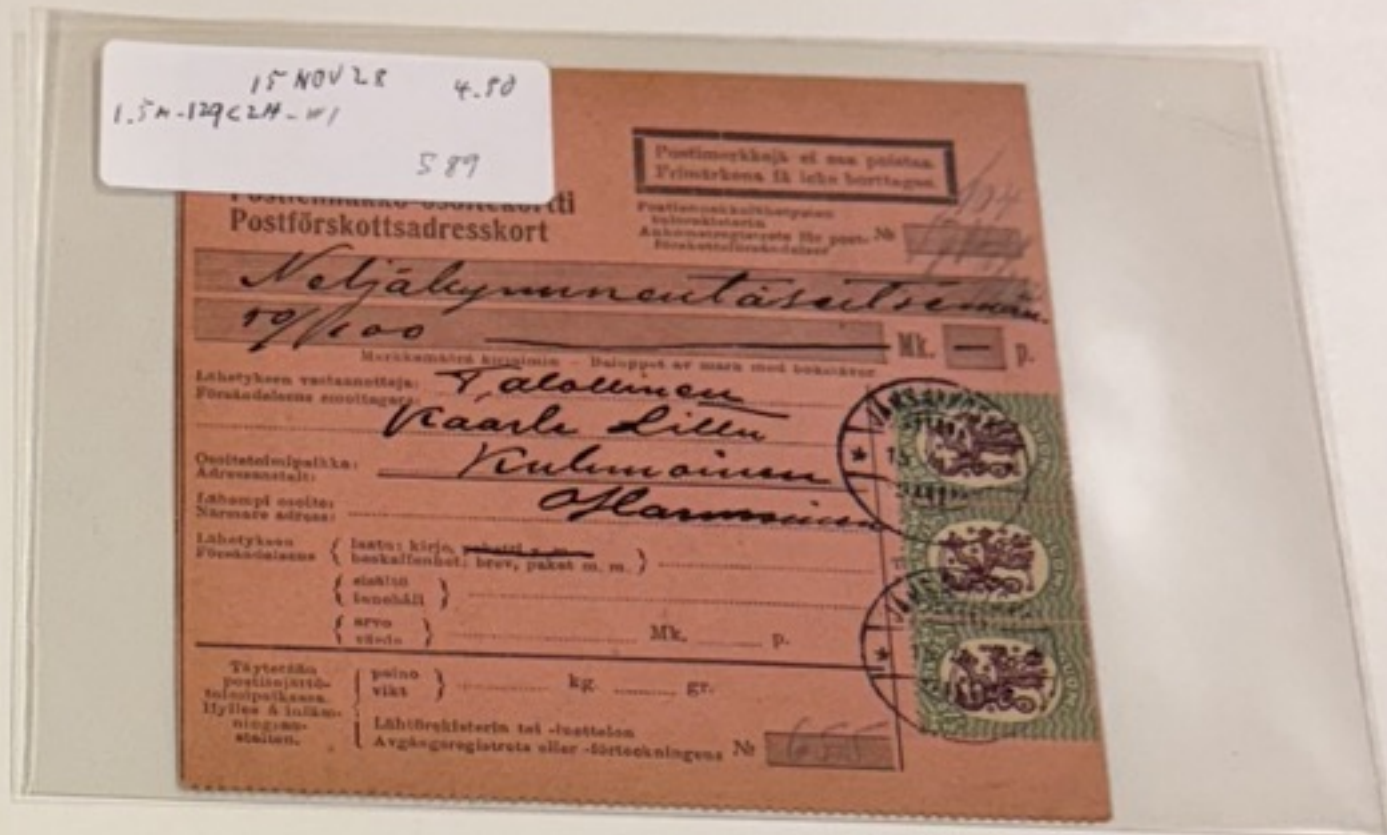 15 NOV 28 4.50
589
Postiennakko-osoitekortti
Postförskottsadresskort
Postimerkkejä ei saa poistaa.
Frimärkena få icke borttagas.
Postiennakkolähetysten
tulorekisterin
Ankomstregistrets för post-
förskottsförsändelser № 
Neljäkymmentäseitsemän
59/100 Mk. — p.
Markkamäärä kirjaimin – Beloppet av mark med bokstäver.
Lähetyksen vastaanottaja: Talollinen
Försändelsens emottagare:
Kaarle
Osoitetoimipaikka: Kuhmoinen
Adressanstalt:
Lähempi osoite:
Närmare adress:
Lähetyksen laatu: kirje,
Försändelsens beskaffenhet: brev, paket m. m.
sisältö
innehåll
arvo
värde Mk. p.
Täytetään
postiinjättö-
toimipaikassa.
Ifylles å inläm-
ningsan-
stalten.
paino
vikt kg. gr.
Lähtörekisterin tai -luettelon
Avgångsregistrets eller -förteckningens № 655